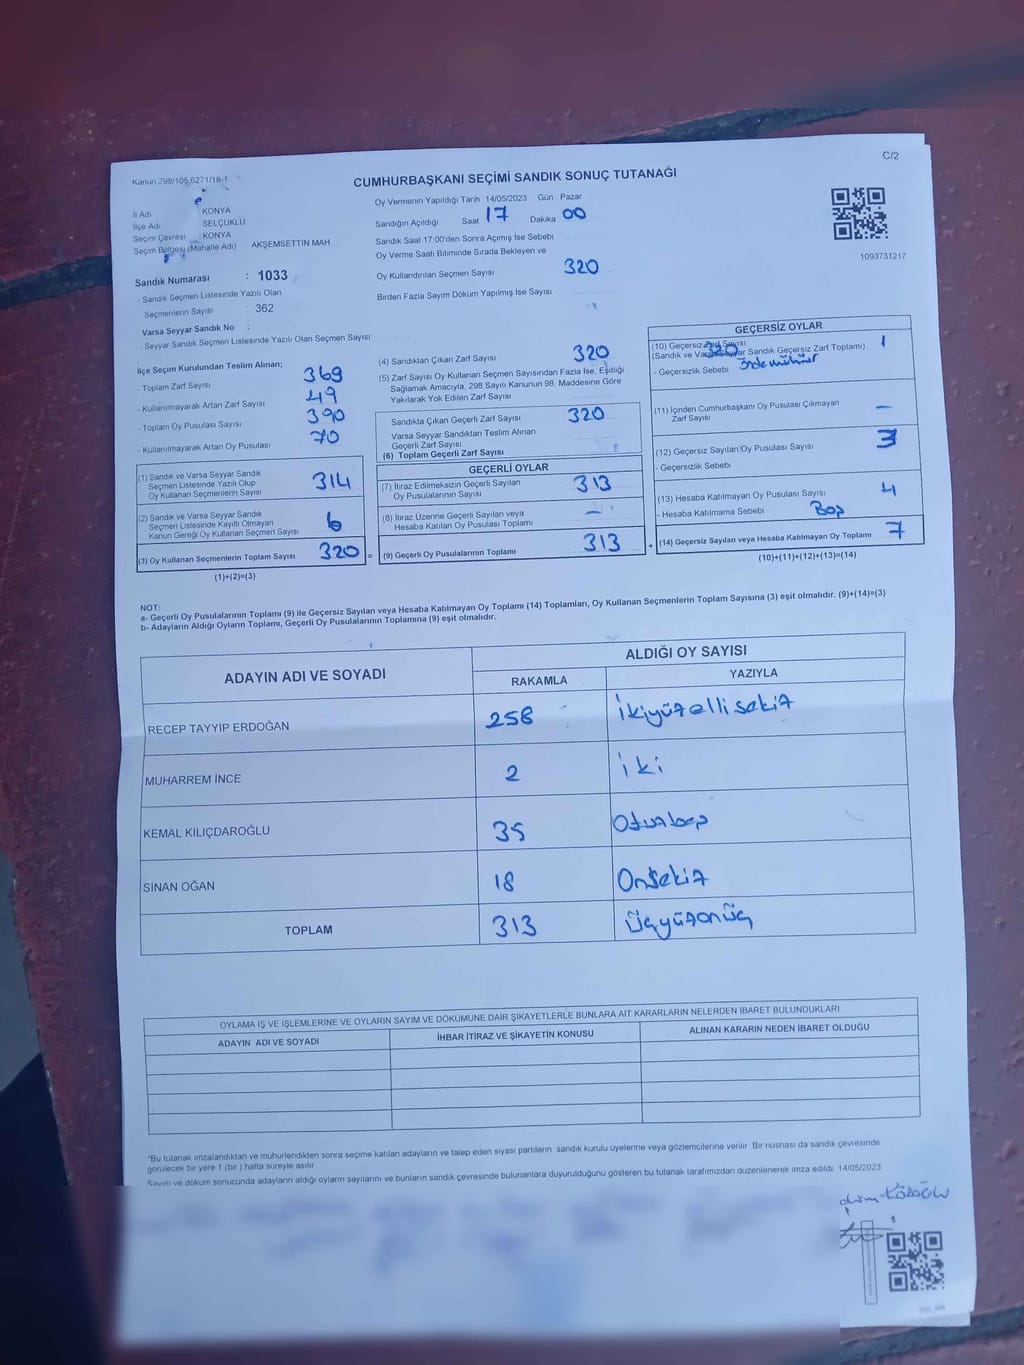 C/2
Kanun 298/105,6271/18-1
CUMHURBAŞKANI SEÇİMİ SANDIK SONUÇ TUTANAĞI
İl Adı : KONYA
İlçe Adı SELÇUKLU
Seçim Çevresi : KONYA
Seçim Bölgesi (Mahalle Adı) AKŞEMSETTİN MAH
Sandık Numarası : 1033
- Sandık Seçmen Listesinde Yazılı Olan
Seçmenlerin Sayısı : 362
Varsa Seyyar Sandık No :
- Seyyar Sandık Seçmen Listesinde Yazılı Olan Seçmen Sayısı
Oy Vermenin Yapıldığı Tarih 14/05/2023 Gün Pazar
Sandığın Açıldığı Saat 17 Dakika 00
Sandık Saat 17:00'den Sonra Açımış İse Sebebi
Oy Verme Saati Bitiminde Sırada Bekleyen ve
Oy Kullandırılan Seçmen Sayısı 320
Birden Fazla Sayım Döküm Yapılmış İse Sayısı
1093731217
İlçe Seçim Kurulundan Teslim Alınan;
- Toplam Zarf Sayısı 369
- Kullanılmayarak Artan Zarf Sayısı 49
- Toplam Oy Pusulası Sayısı 390
- Kullanılmayarak Artan Oy Pusulası 70
(1) Sandık ve Varsa Seyyar Sandık
Seçmen Listesinde Yazılı Olup
Oy Kullanan Seçmenlerin Sayısı 314
(2) Sandık ve Varsa Seyyar Sandık
Seçmen Listesinde Kayıtlı Olmayan
Kanun Gereği Oy Kullanan Seçmen Sayısı 6
(3) Oy Kullanan Seçmenlerin Toplam Sayısı 320 =
(1)+(2)=(3)
(4) Sandıktan Çıkan Zarf Sayısı 320
(5) Zarf Sayısı Oy Kullanan Seçmen Sayısından Fazla İse, Eşitliği
Sağlamak Amacıyla, 298 Sayılı Kanunun 98. Maddesine Göre
Yakılarak Yok Edilen Zarf Sayısı
Sandıkta Çıkan Geçerli Zarf Sayısı 320
Varsa Seyyar Sandıktan Teslim Alınan
Geçerli Zarf Sayısı
(6) Toplam Geçerli Zarf Sayısı 320
GEÇERLİ OYLAR
(7) İtiraz Edilmeksizin Geçerli Sayılan
Oy Pusulalarının Sayısı 313
(8) İtiraz Üzerine Geçerli Sayılan veya
Hesaba Katılan Oy Pusulası Toplamı –
(9) Geçerli Oy Pusulalarının Toplamı 313 +
GEÇERSİZ OYLAR
(10) Geçersiz Zarf Sayısı 1
(Sandık ve Varsa Seyyar Sandık Geçersiz Zarf Toplamı)
- Geçersizlik Sebebi
(11) İçinden Cumhurbaşkanı Oy Pusulası Çıkmayan
Zarf Sayısı –
(12) Geçersiz Sayılan Oy Pusulası Sayısı 3
- Geçersizlik Sebebi
(13) Hesaba Katılmayan Oy Pusulası Sayısı 4
- Hesaba Katılmama Sebebi Boş
(14) Geçersiz Sayılan veya Hesaba Katılmayan Oy Toplamı 7
(10)+(11)+(12)+(13)=(14)
NOT:
a- Geçerli Oy Pusulalarının Toplamı (9) ile Geçersiz Sayılan veya Hesaba Katılmayan Oy Toplamı (14) Toplamları, Oy Kullanan Seçmenlerin Toplam Sayısına (3) eşit olmalıdır. (9)+(14)=(3)
b- Adayların Aldığı Oyların Toplamı, Geçerli Oy Pusulalarının Toplamına (9) eşit olmalıdır.
ADAYIN ADI VE SOYADI
ALDIĞI OY SAYISI
RAKAMLA YAZIYLA
RECEP TAYYIP ERDOĞAN 258 İkiyüzellisekiz
MUHARREM İNCE 2 iki
KEMAL KILIÇDAROĞLU 35 Otuzbeş
SİNAN OĞAN 18 Onsekiz
TOPLAM 313 Üçyüzonüç
OYLAMA İŞ VE İŞLEMLERİNE VE OYLARIN SAYIM VE DÖKÜMÜNE DAİR ŞİKAYETLERLE BUNLARA AİT KARARLARIN NELERDEN İBARET BULUNDUKLARI
ADAYIN ADI VE SOYADI İHBAR İTİRAZ VE ŞİKAYETİN KONUSU ALINAN KARARIN NEDEN İBARET OLDUĞU
*Bu tutanak imzalandıktan ve mühürlendikten sonra seçime katılan adayların ve talep eden siyasi partilerin sandık kurulu üyelerine veya gözlemcilerine verilir Bir nüshası da sandık çevresinde
görülecek bir yere 1 (bir) hafta süreyle asılır
Sayım ve döküm sonucunda adayların aldığı oyların sayılarını ve bunların sandık çevresinde bulunanlara duyurulduğunu gösteren bu tutanak tarafımızdan düzenlenerek imza edildi 14/05/2023